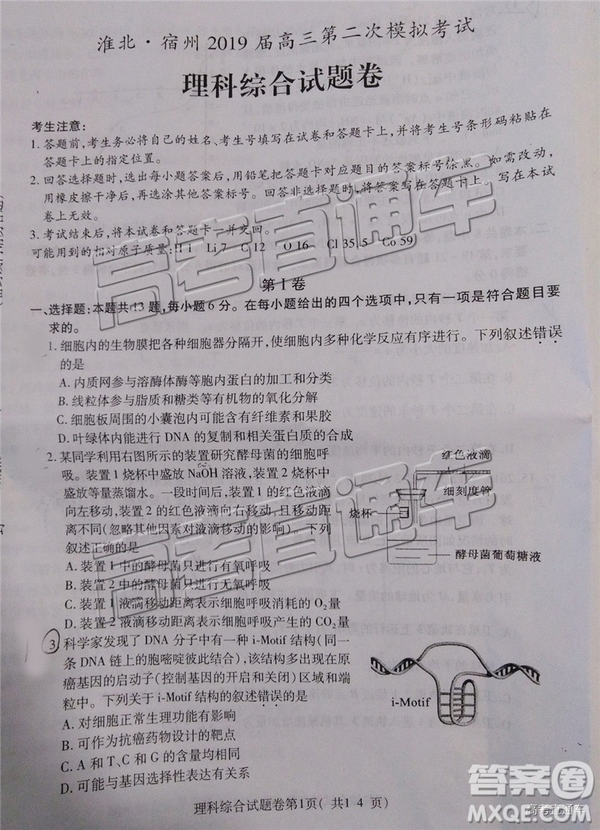 淮北·宿州2019届高三第二次模拟考试
理科综合试题卷
考生注意:
1. 答题前,考生务必将自己的姓名、考生号填写在试卷和答题卡上,并将考生号条形码粘贴在
答题卡上的指定位置。
2. 回答选择题时,选出每小题答案后,用铅笔把答题卡对应题目的答案标号涂黑。如需改动,
用橡皮擦干净后,再选涂其他答案标号。回答非选择题时,将答案写在答题卡上。写在本试
卷上无效。
3. 考试结束后,将本试卷和答题卡一并交回。
可能用到的相对原子质量:H 1 Li 7 C 12 O 16 Cl 35.5 Co 59
第Ⅰ卷
一、选择题:本题共13题,每小题6分。在每小题给出的四个选项中,只有一项是符合题目要
求的。
1. 细胞内的生物膜把各种细胞器分隔开,使细胞内多种化学反应有序进行。下列叙述错误
的是
A. 内质网参与溶酶体酶等胞内蛋白的加工和分类
B. 线粒体参与脂质和糖类等有机物的氧化分解
C. 细胞板周围的小囊泡内可能含有纤维素和果胶
D. 叶绿体内能进行DNA的复制和相关蛋白质的合成
2. 某同学利用右图所示的装置研究酵母菌的细胞呼
吸。装置1烧杯中盛放NaOH溶液,装置2烧杯中
盛放等量蒸馏水。一段时间后,装置1的红色液滴
向左移动,装置2的红色液滴向右移动,且移动距
离不同(忽略其他因素对液滴移动的影响)。下列
叙述正确的是
红色液滴
细刻度管
烧杯
酵母菌葡萄糖液
A. 装置1中的酵母菌只进行有氧呼吸
B. 装置2中的酵母菌只进行无氧呼吸
C. 装置1液滴移动距离表示细胞呼吸消耗的O2量
D. 装置2液滴移动距离表示细胞呼吸产生的CO2量
3. 科学家发现了DNA分子中有一种i-Motif结构(同一
条DNA链上的胞嘧啶彼此结合),该结构多出现在原
癌基因的启动子(控制基因的开启和关闭)区域和端
粒中。下列关于i-Motif结构的叙述错误的是
i-Motif
A. 对细胞正常生理功能有影响
B. 可作为抗癌药物设计的靶点
C. A、T、C和G的含量均相等
D. 可能与基因选择性表达有关
理科综合试题卷第1页(共14页)
高考直通车
高考直通车
答案圈